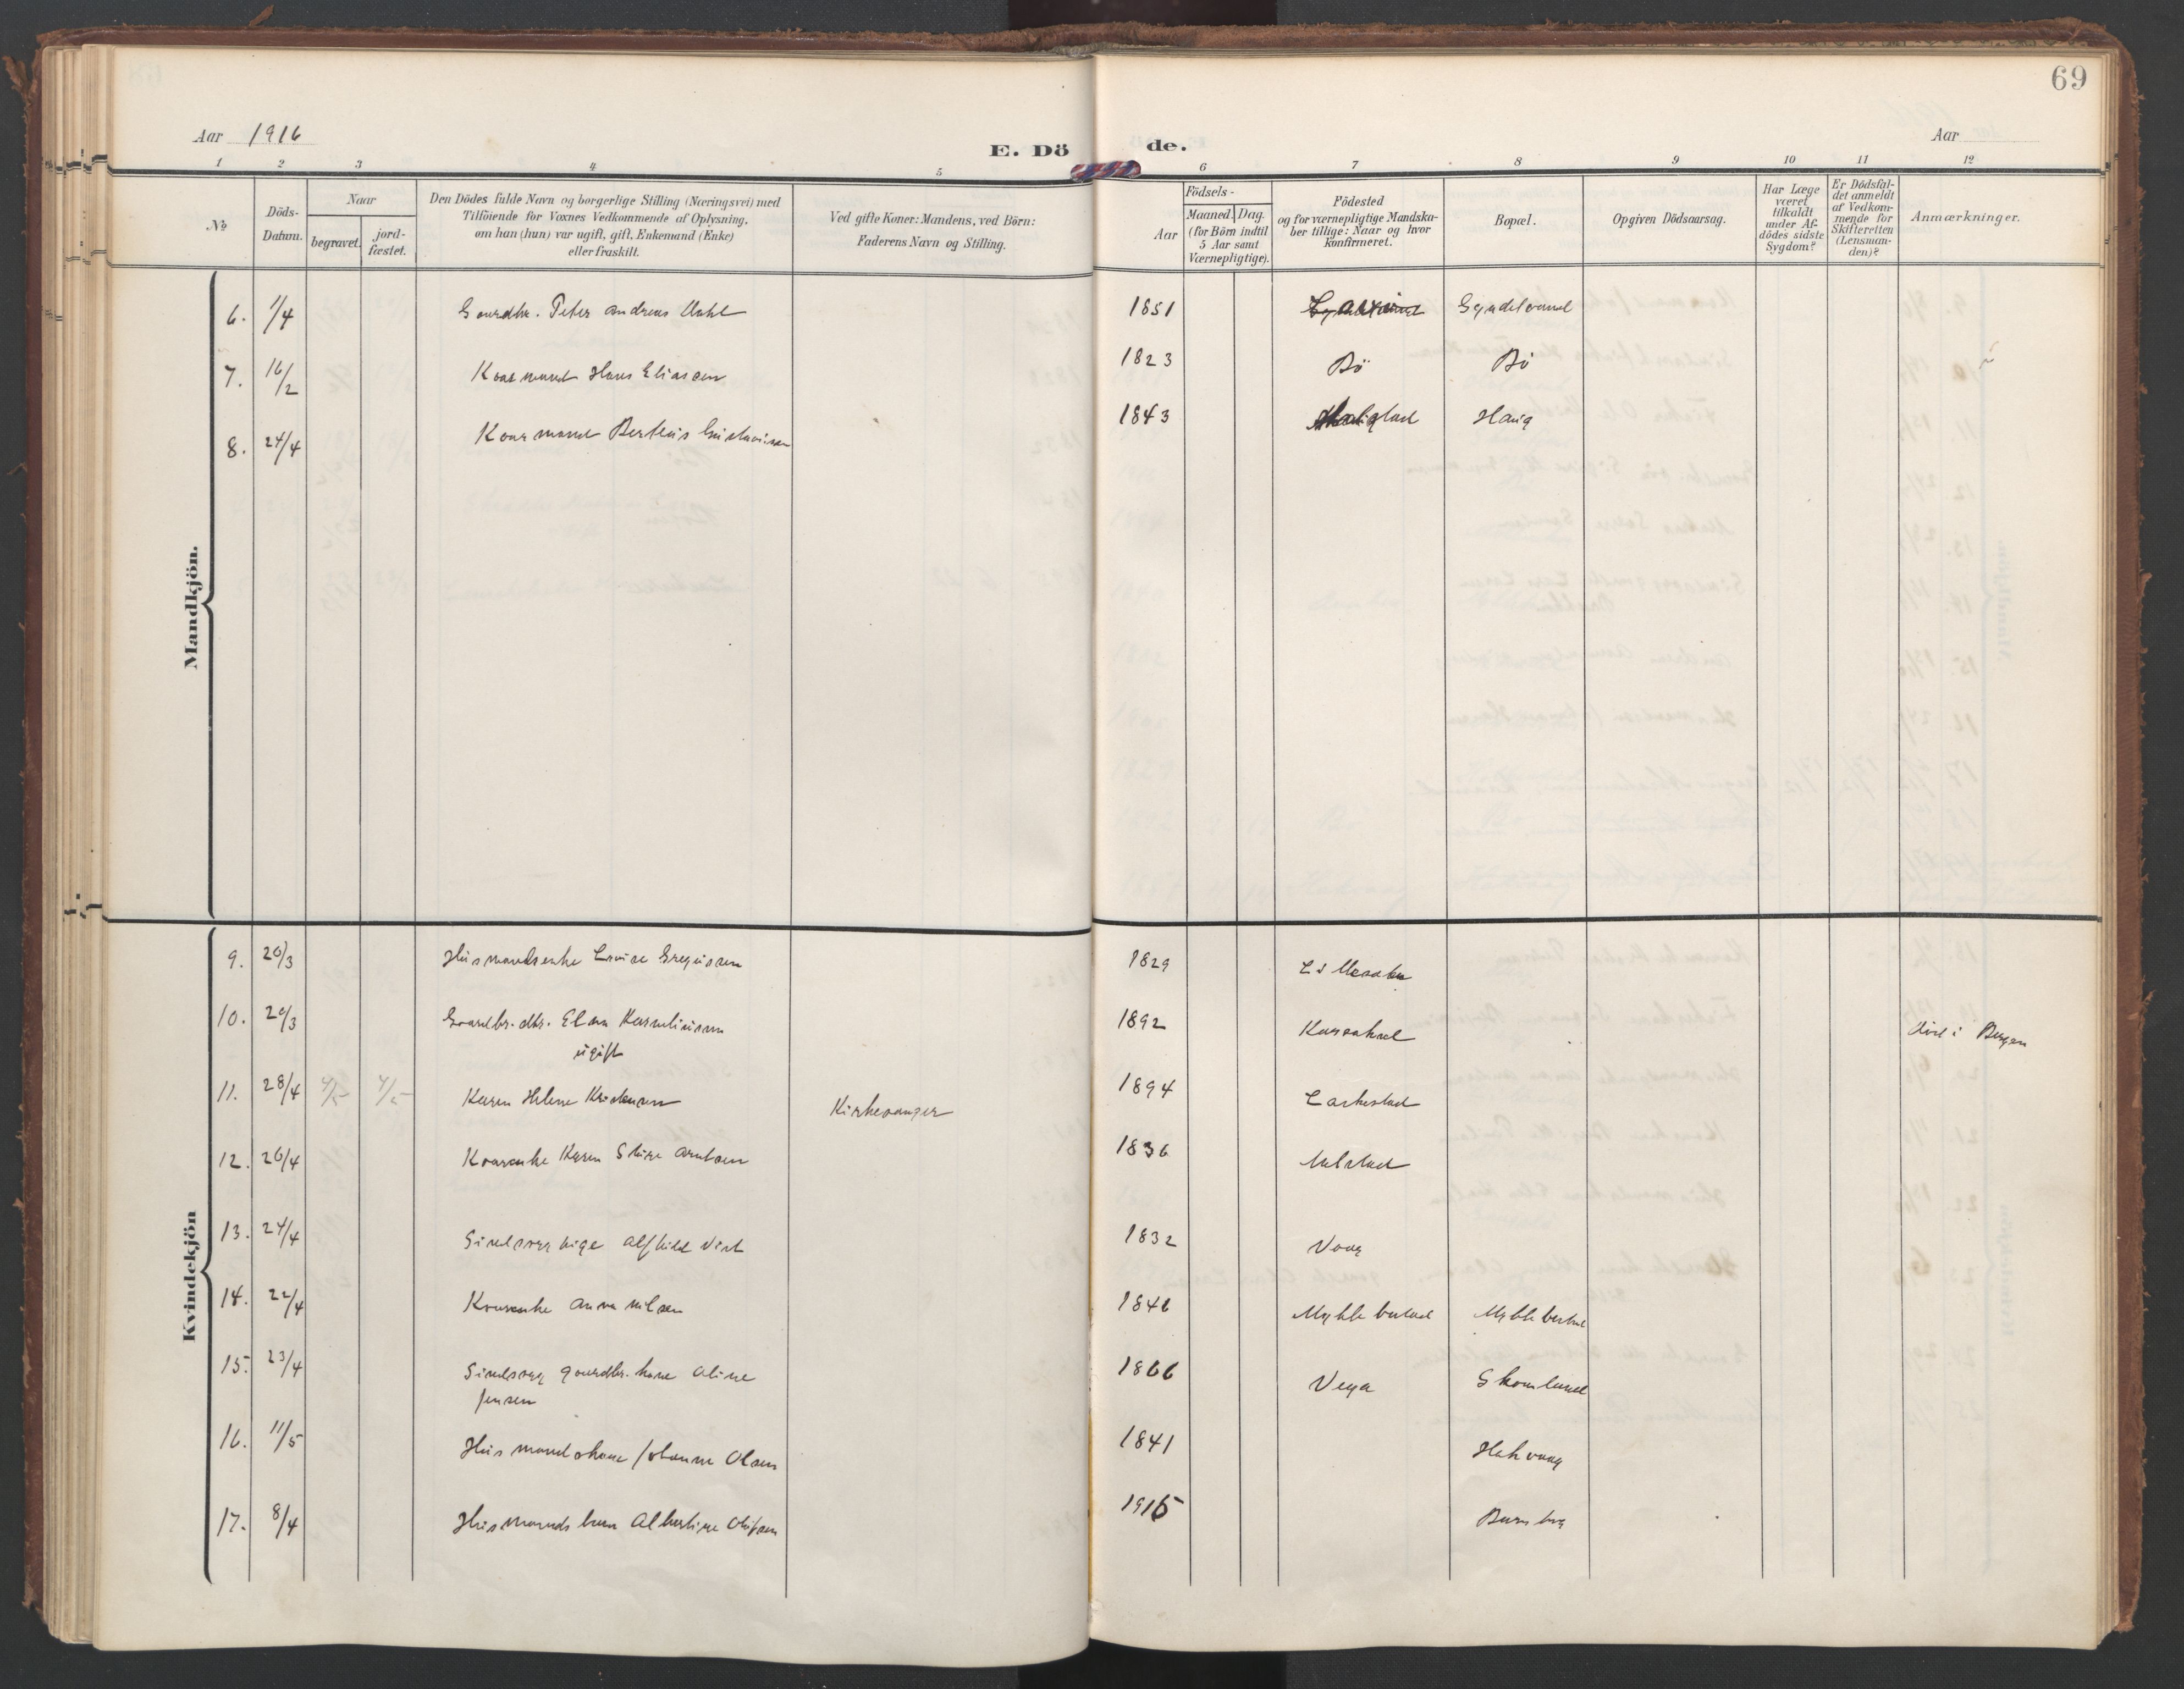 69
Aar 1916
Aar
E. Dö
de.
1 2 3 4 5 6 7 8 9 10 11 12
No
Döds-
Datum.
Naar
begravet.
jord-
fæstet.
Den Dödes fulde Navn og borgerlige Stilling (Næringsvei) med
Tilföiende for Voxnes Vedkommende af Oplysning,
om han (hun) var ugift, gift, Enkemand (Enke)
eller fraskilt.
Ved gifte Koner: Mandens, ved Börn:
Faderens Navn og Stilling.
Födsels-
Aar
Maaned. Dag.
(for Börn indtil
5 Aar samt
Værnepligtige).
Födested
og for værnepligtige Mandska-
ber tillige: Naar og hvor
Konfirmeret.
Bopæl.
Opgiven Dödsaarsag.
Har Læge
været
tilkaldt
under Af-
dödes sidste
Sygdom?
Er Dödsfal-
det anmeldt
af Vedkom-
mende for
Skifteretten
(Lensman-
den)?
Anmærkninger.
Mandkjön.
6. 1/4 Gaardbr. Peter Andreas Dahl 1851
7. 16/2 Kaarmand Hans Eliassen 1823 Bö Bö
8. 24/4 Kaarmand Berteus Gustavsen 1843 Haug
Kvindekjön
9. 20/3 Husmandsenke Lovise Gregusen 1829
10. 20/3 Gaardbr. dtr. Elen Karneliusen 1892
ugift
död i Bergen
11. 28/4 4/5 4/5 Karen Helene Kristensen Kirkesanger 1894
12. 26/4 Kaarenke Karen Arntsen 1836
13. 24/4 Sindssyg pige Alfhild 1832 Vaag
14. 22/4 Kaarenke Anna Nilsen 1846 Myklebustad Myklebustad
15. 23/4 Sindssyg gaardbr. kone Aline
Jensen
1866 Vega Skomlund
16. 11/5 Husmandskone Johanne Olsen 1841 Hakvaag
17. 8/4 Husmands barn Albertine Olufsen 1915